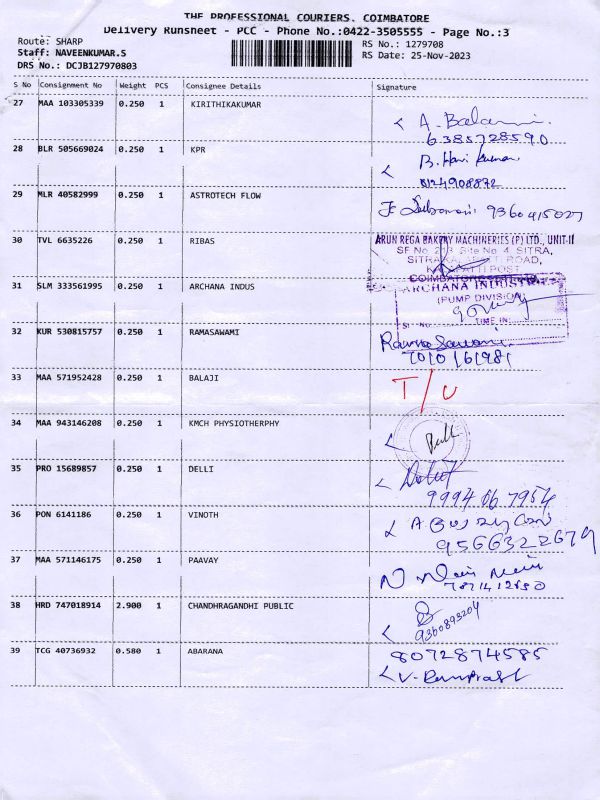 THE PROFESSIONAL COURIERS, COIMBATORE
Delivery Runsheet - PCC - Phone No.:0422-3505555 - Page No.:3
Route: SHARP
RS No.: 1279708
Staff: NAVEENKUMAR.S
RS Date: 25-Nov-2023
DRS No.: DCJB127970803
S No Consignment No Weight PCS Consignee Details Signature
27 MAA 103305339 0.250 1 KIRITHIKAKUMAR
6385728590
28 BLR 505669024 0.250 1 KPR
B. Hari Kumar
8124908872
29 MLR 40582999 0.250 1 ASTROTECH FLOW
9360415027
30 TVL 6635226 0.250 1 RIBAS
ARUN REGA BAKERY MACHINERIES (P) LTD., UNIT-II
SF No. Site No. 4, SITRA,
SITRA ROAD,
POST
COIMBATORE
31 SLM 333561995 0.250 1 ARCHANA INDUS
ARCHANA INDUST
(PUMP DIVISION)
TIME IN:
32 KUR 530815757 0.250 1 RAMASAWAMI
Ramasawami
33 MAA 571952428 0.250 1 BALAJI
T/U
34 MAA 943146208 0.250 1 KMCH PHYSIOTHERPHY
35 PRO 15689857 0.250 1 DELLI
9994067954
36 PON 6141186 0.250 1 VINOTH
9566322679
37 MAA 571146175 0.250 1 PAAVAY
38 HRD 747018914 2.900 1 CHANDHRAGANDHI PUBLIC
9360893204
39 TCG 40736932 0.580 1 ABARANA
8072874585